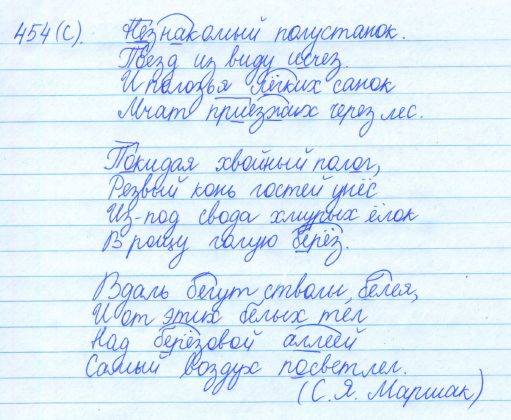 454(с). Незнакомый полустанок.
Поезд из виду исчез.
И полозья лёгких санок
Мчат приезжих через лес.
Покидая хвойный полог,
Резвый конь гостей унёс
Из-под свода хмурых ёлок
В рощу голую берёз.
Вдаль бегут стволы, белея,
И от этих белых тел
Над берёзовой аллеей
Самый воздух посветлел.
(С. Я. Маршак)